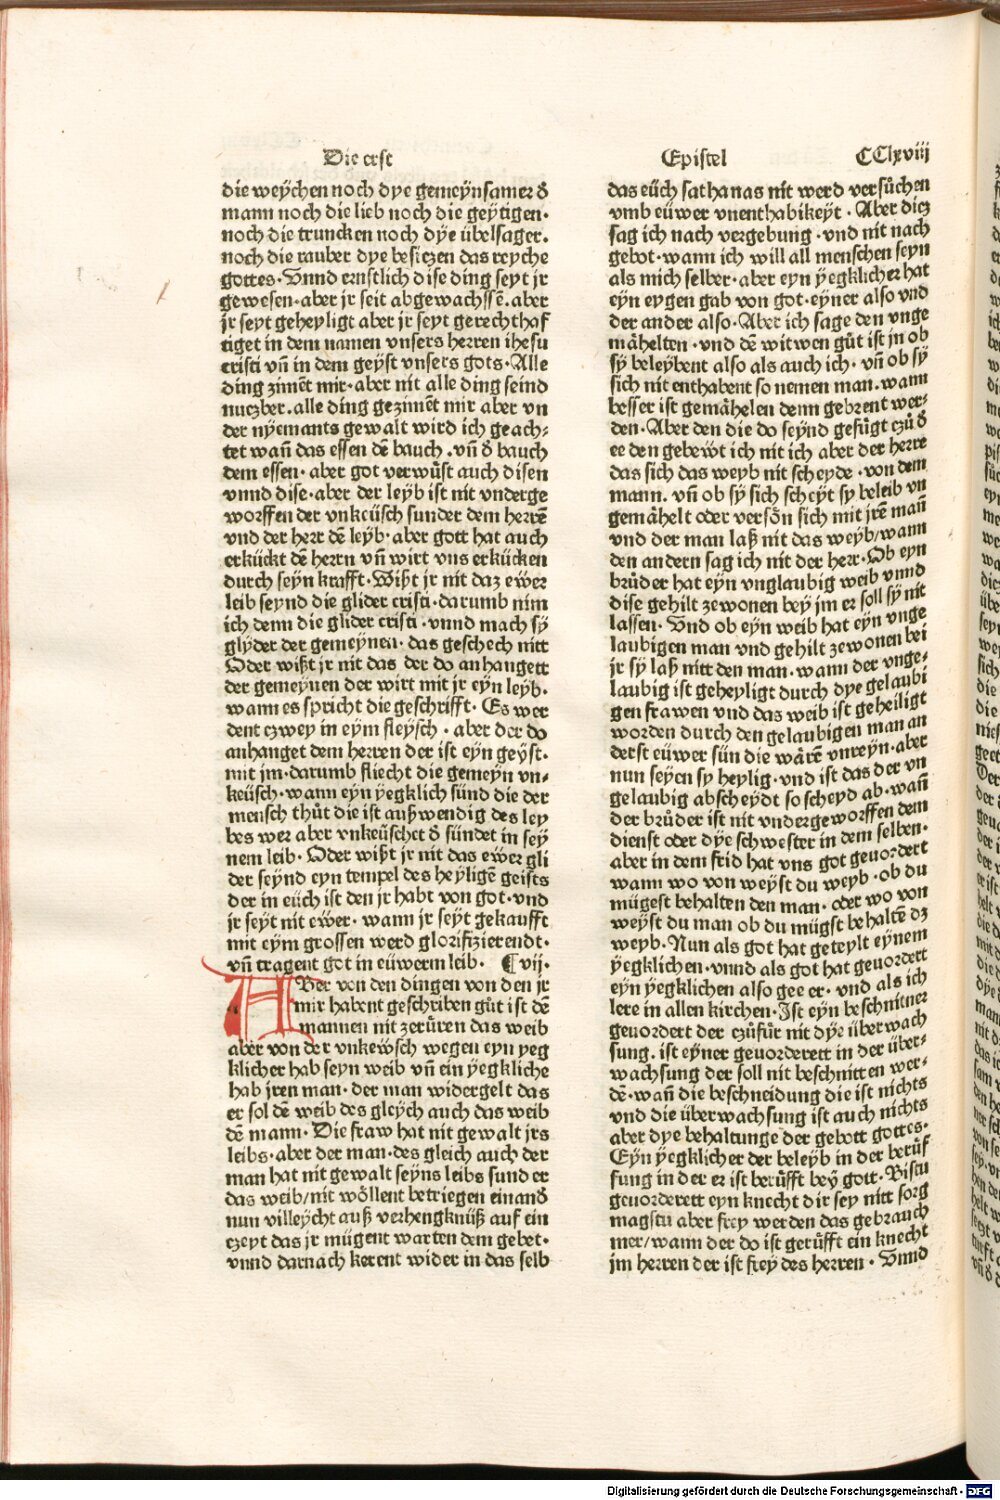 Die erst
Epistel
CClxviij
die weÿchen noch dye gemeÿnsamer ð
mann noch die lieb noch die geÿtigen·
noch die truncken noch dÿe übelsager.
noch die rauber dye besiczen das reyche
gottes·Vnnd ernstlich dise ding seyt jr
gewesen·aber jr seit abgewachssē.aber
jr seyt geheyligt aber jr seyt gerechthaf
tiget in dem namen vnsers herren ihesu
cristi vñ in dem geÿst vnsers gots·Alle
ding zimēt mir·aber nit alle ding seind
nuczber.alle ding gezimēt mir aber vn
der nÿemants gewalt wird ich geach⸗
tet wañ das essen dē bauch·vñ ð bauch
dem essen·aber got verwu̇st auch disen
vnnd dise·aber der leÿb ist nit vnderge
worffen der vnkeüsch sunder dem herrē
vnd der herr dē leÿb·aber gott hat auch
erkückt dē herrn vñ wirt vns erkücken
durch seÿn krafft·Wißt jr nit daz ewer
leib seynd die glider cristi·darumb nim
ich denn die glider cristi·vnnd mach sÿ
glÿder der gemeÿnen·das geschech nitt
Oder wißt jr nit das der do anhangett
der gemeÿnen der wirt mit jr eÿn leÿb.
wann es spricht die geschrifft·Es wer
dent czwey in eÿm fleÿsch·aber der do
anhanget dem herren der ist eÿn geÿst.
mit jm·darumb fliecht die gemeÿn vn⸗
keüsch·wann eÿn ÿegklich sünd die der
mensch thu̇t die ist außwendig des ley
bes wer aber vnkeüschet ð sündet in seÿ
nem leib·Oder wißt jr nit das ewer gli
der seÿnd eyn tempel des heÿligē geists
der in eüch ist den jr habt von got·vnd
jr seÿt nit ewer·wann jr seÿt gekaufft
mit eÿm grossen werd glorifizierendt·
vñ tragent got in eüwerm leib· ¶vij·
ABer von den dingen von den jr
mir habent geschriben gu̇t ist dē
mannen nit zeru̇ren das weib
aber von der vnkewsch wegen eyn yeg
klicher hab seyn weib vñ ein ÿegkliche
hab jren man·der man widergelt das
er sol dē weib des gleÿch auch das weib
dē mann·Die fraw hat nit gewalt jrs
leibs·aber der man·des gleich auch der
man hat nit gewalt seÿns leibs sund er
das weib/nit wöllent betriegen einanð
nun villeÿcht auß verhengknüß auf ein
czeyt das jr mügent warten dem gebet·
vnnd darnach kerent wider in das selb
das eüch sathanas nit werd versu̇chen
vmb eüwer vnenthabikeÿt·Aber diez
sag ich nach vergebung·vnd nit nach
gebot·wann ich will all menschen seyn
als mich selber·aber eyn ÿegklicher hat
eÿn eygen gab von got·eÿner also vnd
der ander also·Aber ich sage den vnge
mähelten·vnd dē witwen gu̇t ist jn ob
sÿ beleÿbent also als auch ich·vñ ob sÿ
sich nit enthabent so nemen man.wann
besser ist gemähelen denn gebrent wer⸗
den·Aber den die do seÿnd gefu̇gt czu̇ ð
ee den gebewt ich nit ich aber der herre
das sich das weyb nit scheyde·von dem
mann.vñ ob sÿ sich scheÿt sy beleib vn
gemähelt oder versön sich mit jrē mañ
vnd der man laß nit das weyb/wann
den andern sag ich nit der herr·Ob eyn
bru̇der hat eÿn vnglaubig weib vnnd
dise gehilt zewonen beÿ jm er soll sÿ nit
lassen·Vnd ob eÿn weib hat eÿn vnge
laubigen man vnd gehilt zewonen bei
jr sÿ laß nitt den man·wann der vnge⸗
laubig ist geheyligt durch dye gelaubi
gen frawen vnd das weib ist geheiligt
worden durch den gelaubigen man an
derst eüwer sün die wärē vnreÿn·aber
nun seÿen sy heylig·vnd ist das der vn
gelaubig abscheÿdt so scheyd ab·wañ
der bru̇der ist nit vndergeworffen dem
dienst oder dÿe schwester in dem selben·
aber in dem frid hat vns got geuordert
wann wo von weÿst du weyb·ob du
mügest behalten den man·oder wo von
weÿst du man ob du mügst behaltē dz
weyb·Nun als got hat geteylt eÿnem
ÿegklichen·vnnd als got hat geuordert
eÿn ÿegklichen also gee er·vnd als ich
lere in allen kirchen·Ist eÿn beschnitner
geuordert der czu̇fu̇r nit dÿe überwach
sung.ist eÿner geuorderett in der über⸗
wachsung der soll nit beschnitten wer⸗
dē·wañ die beschneidung die ist nichts
vnd die überwachsung ist auch nichts
aber dye behaltunge der gebott gottes·
Eÿn ÿegklicher der beleÿb in der beru̇f
fung in der er ist beru̇fft beÿ gott·Bistu
geuorderett eyn knecht dir sey nitt sorg
magstu aber frey werden das gebrauch
mer/wann der do ist geru̇fft ein knecht
jm herren der ist freÿ des herren·Vnnd
Digitalisierung gefördert durch die Deutsche Forschungsgemeinschaft · DFG